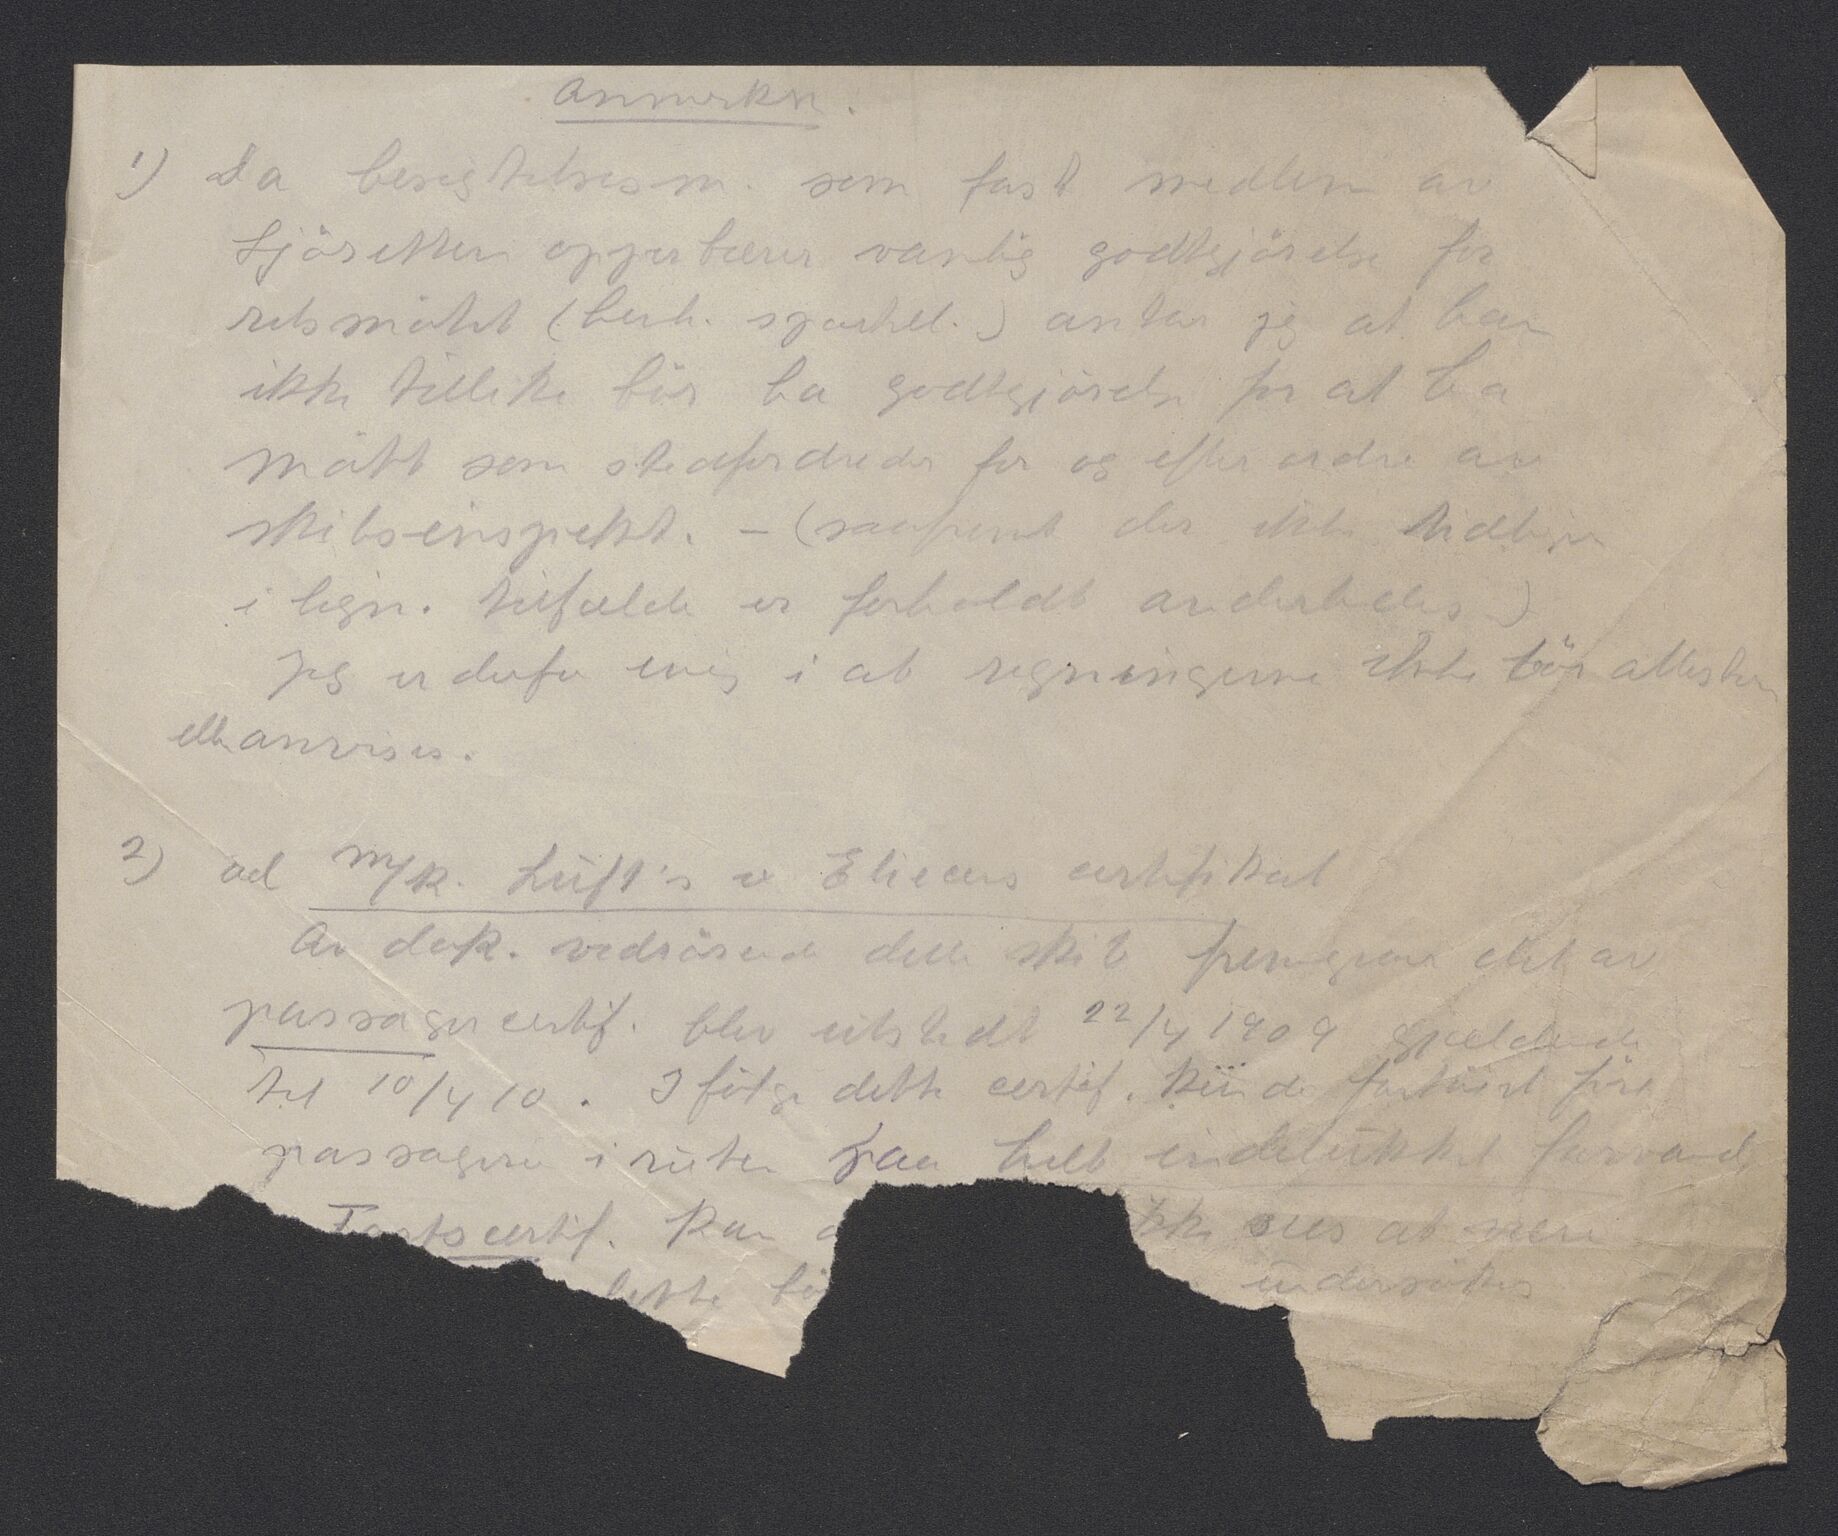 Anmerkn.
1) Da besigtelsesm. som fast medlem av
Sjöretten oppebærer vanlig godtgjörelse for
retsmötet (besk. sportel.) antar jeg at han
ikke tillike bör ha godtgjörelse for at ha
mött som stedfortreder for og efter ordre av
skibsinspekt. – (saafremt der ikke tidligere
i lign. tilfælde er forholdt anderledes)
Jeg er derfor enig i at regningerne ikke bör attesteres
eller anvises.
2) ad m/k. Luft's certifikat
Av dok. vedrörende dette skib fremgaar det at
passager certif. blev utstedt 22/4 1909 gjældende
til 10/4 10. Ifölge dette certif. kunde fartöiet före
passagerer i ruten paa helt indelukket farvand,
Fartscertif. kan ikke sees at være
dette undersökes